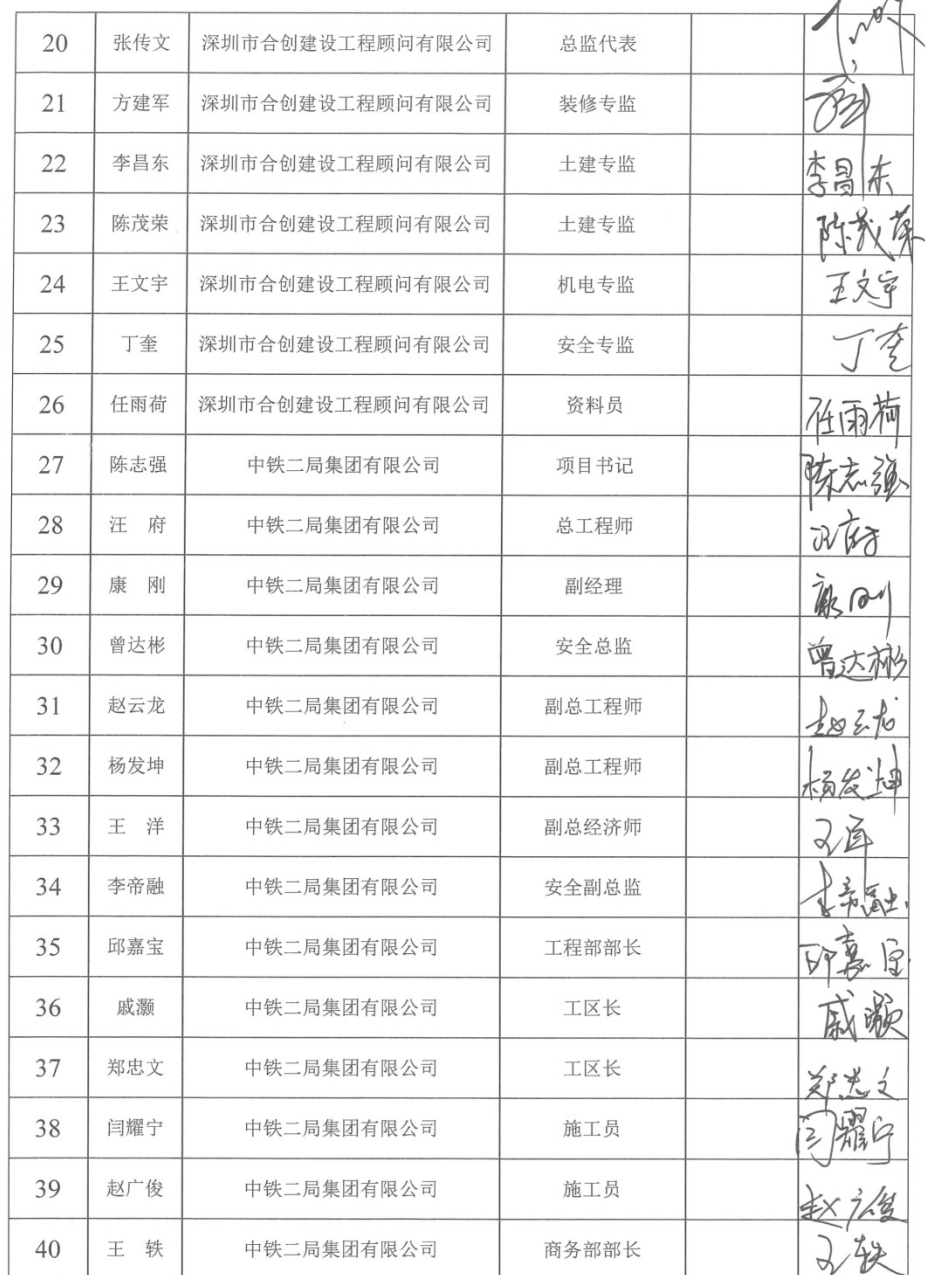 20 张传文 深圳市合创建设工程顾问有限公司 总监代表
21 方建军 深圳市合创建设工程顾问有限公司 装修专监
22 李昌东 深圳市合创建设工程顾问有限公司 土建专监 李昌东
23 陈茂荣 深圳市合创建设工程顾问有限公司 土建专监 陈茂荣
24 王文宇 深圳市合创建设工程顾问有限公司 机电专监 王文宇
25 丁奎 深圳市合创建设工程顾问有限公司 安全专监 丁奎
26 任雨荷 深圳市合创建设工程顾问有限公司 资料员 任雨荷
27 陈志强 中铁二局集团有限公司 项目书记 陈志强
28 汪 府 中铁二局集团有限公司 总工程师 汪府
29 康 刚 中铁二局集团有限公司 副经理 康刚
30 曾达彬 中铁二局集团有限公司 安全总监 曾达彬
31 赵云龙 中铁二局集团有限公司 副总工程师 赵云龙
32 杨发坤 中铁二局集团有限公司 副总工程师 杨发坤
33 王 洋 中铁二局集团有限公司 副总经济师 王洋
34 李帝融 中铁二局集团有限公司 安全副总监 李帝融
35 邱嘉宝 中铁二局集团有限公司 工程部部长 邱嘉宝
36 戚灏 中铁二局集团有限公司 工区长 戚灏
37 郑忠文 中铁二局集团有限公司 工区长 郑忠文
38 闫耀宁 中铁二局集团有限公司 施工员 闫耀宁
39 赵广俊 中铁二局集团有限公司 施工员 赵广俊
40 王 轶 中铁二局集团有限公司 商务部部长 王轶